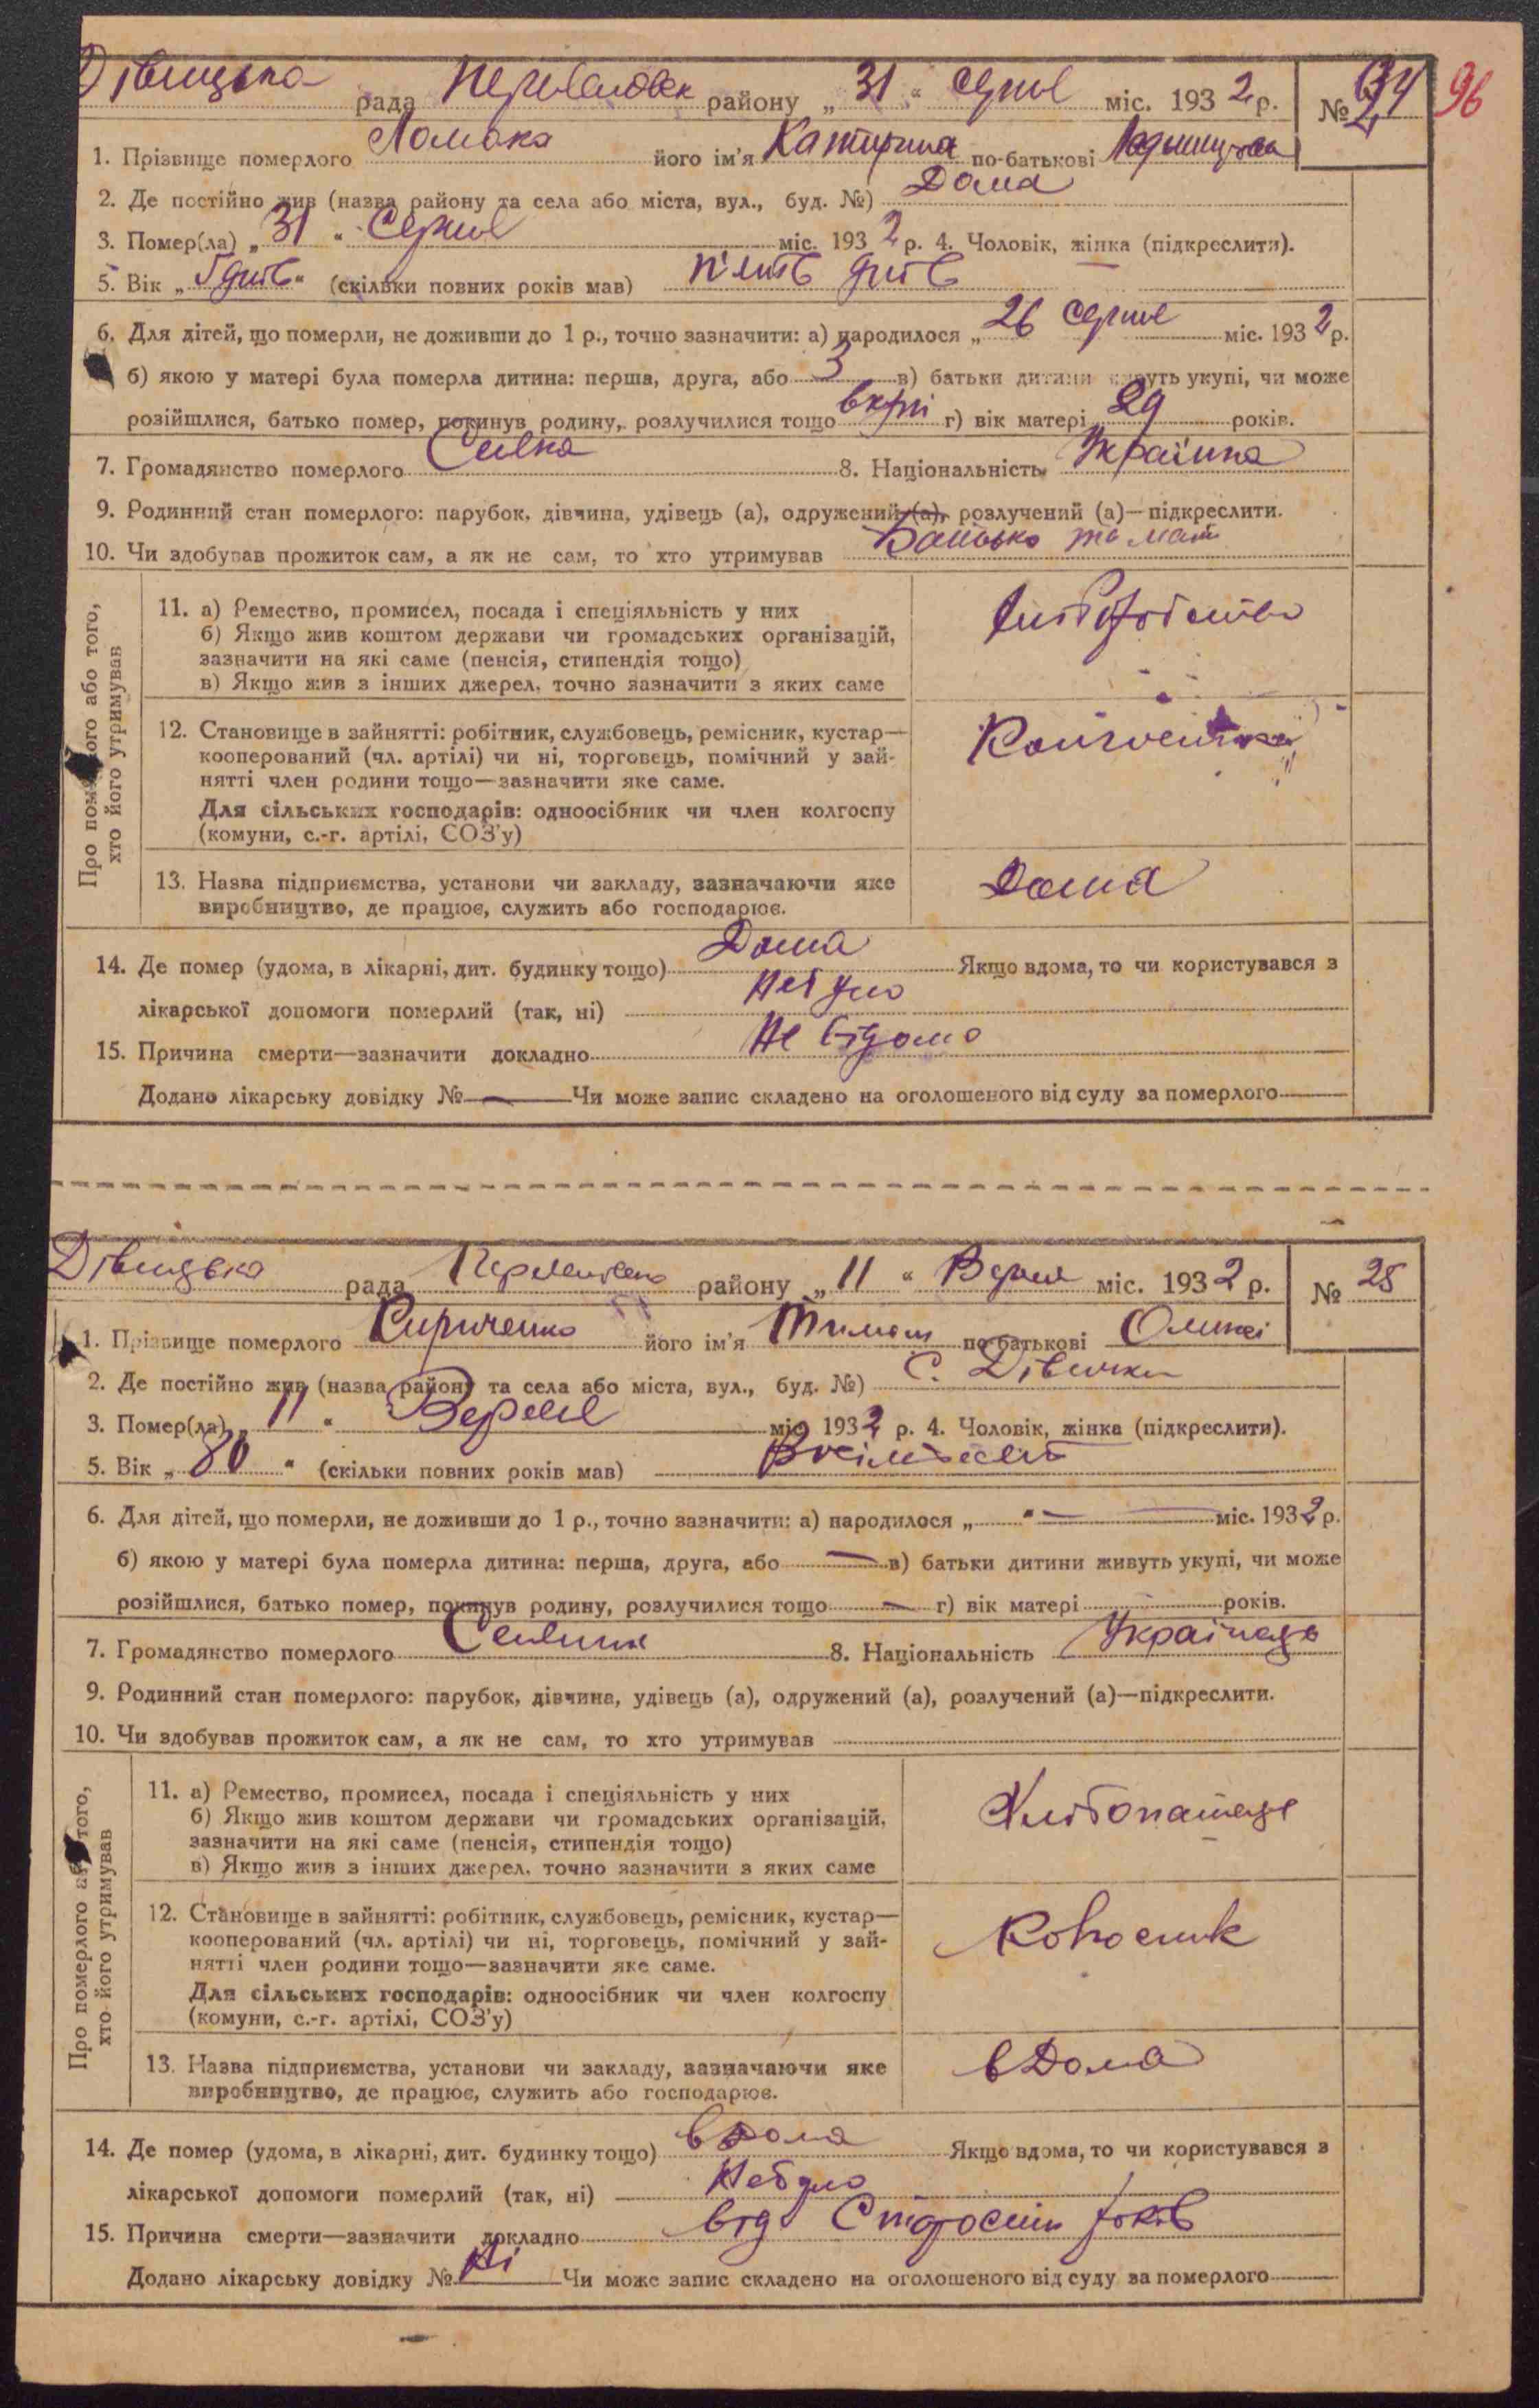 Дівицька рада Переяславськ району „31“ серпня міс. 1932 р. № 24 96
1. Прізвище померлого Ломака його ім'я Катирина по-батькові
2. Де постійно жив (назва району та села або міста, вул., буд. №) Дома
3. Помер(ла) „31“ Серпня міс. 1932 р. 4. Чоловік, жінка (підкреслити).
5. Вік „5 днів“ (скільки повних років мав) п'ять днів
6. Для дітей, що померли, не доживши до 1 р., точно зазначити: а) народилося „26 серпня міс. 1932 р.
б) якою у матері була померла дитина: перша, друга, або 3 в) батьки дитини живуть укупі, чи може
розійшлися, батько помер, покинув родину, розлучилися тощо вкупі г) вік матері 29 років.
7. Громадянство померлого Селянка 8. Національність Українка
9. Родинний стан померлого: парубок, дівчина, удівець (а), одружений (а), розлучений (а)—підкреслити.
10. Чи здобував прожиток сам, а як не сам, то хто утримував Батько та мати
Про померлого або того, хто його утримував
11. а) Ремество, промисел, посада і спеціяльність у них
б) Якщо жив коштом держави чи громадських організацій,
зазначити на які саме (пенсія, стипендія тощо)
в) Якщо жив з інших джерел, точно зазначити з яких саме
12. Становище в зайнятті: робітник, службовець, ремісник, кустар—
кооперований (чл. артілі) чи ні, торговець, помічний у зай-
нятті член родини тощо—зазначити яке саме.
Для сільських господарів: одноосібник чи член колгоспу
(комуни, с.-г. артілі, СОЗ'у)
13. Назва підприємства, установи чи закладу, зазначаючи яке Дома
виробництво, де працює, служить або господарює.
14. Де помер (удома, в лікарні, дит. будинку тощо) Дома Якщо вдома, то чи користувався з
лікарської допомоги померлий (так, ні) Небуло
15. Причина смерти—зазначити докладно Не відомо
Додано лікарську довідку № — Чи може запис складено на оголошеного від суду за померлого
Дівицька рада району „11“ Верзня міс. 1932 р. № 25
1. Прізвище померлого Кириченко його ім'я Тимош по-батькові
2. Де постійно жив (назва району та села або міста, вул., буд. №) С. Дівички
3. Помер(ла) „11“ Верезня міс. 1932 р. 4. Чоловік, жінка (підкреслити).
5. Вік „80“ (скільки повних років мав) Вісімдесят
6. Для дітей, що померли, не доживши до 1 р., точно зазначити: а) народилося „ “ — міс. 1932 р.
б) якою у матері була померла дитина: перша, друга, або — в) батьки дитини живуть укупі, чи може
розійшлися, батько помер, покинув родину, розлучилися тощо — г) вік матері років.
7. Громадянство померлого Селянин 8. Національність Українець
9. Родинний стан померлого: парубок, дівчина, удівець (а), одружений (а), розлучений (а)—підкреслити.
10. Чи здобував прожиток сам, а як не сам, то хто утримував
Про померлого або того, хто його утримував
11. а) Ремество, промисел, посада і спеціяльність у них Хлібопашець
б) Якщо жив коштом держави чи громадських організацій,
зазначити на які саме (пенсія, стипендія тощо)
в) Якщо жив з інших джерел, точно зазначити з яких саме
12. Становище в зайнятті: робітник, службовець, ремісник, кустар—
кооперований (чл. артілі) чи ні, торговець, помічний у зай-
нятті член родини тощо—зазначити яке саме.
Для сільських господарів: одноосібник чи член колгоспу
(комуни, с.-г. артілі, СОЗ'у)
13. Назва підприємства, установи чи закладу, зазначаючи яке вДома
виробництво, де працює, служить або господарює.
14. Де помер (удома, в лікарні, дит. будинку тощо) вдома Якщо вдома, то чи користувався з
лікарської допомоги померлий (так, ні) Небуло
15. Причина смерти—зазначити докладно від Старости років
Додано лікарську довідку № Ні Чи може запис складено на оголошеного від суду за померлого